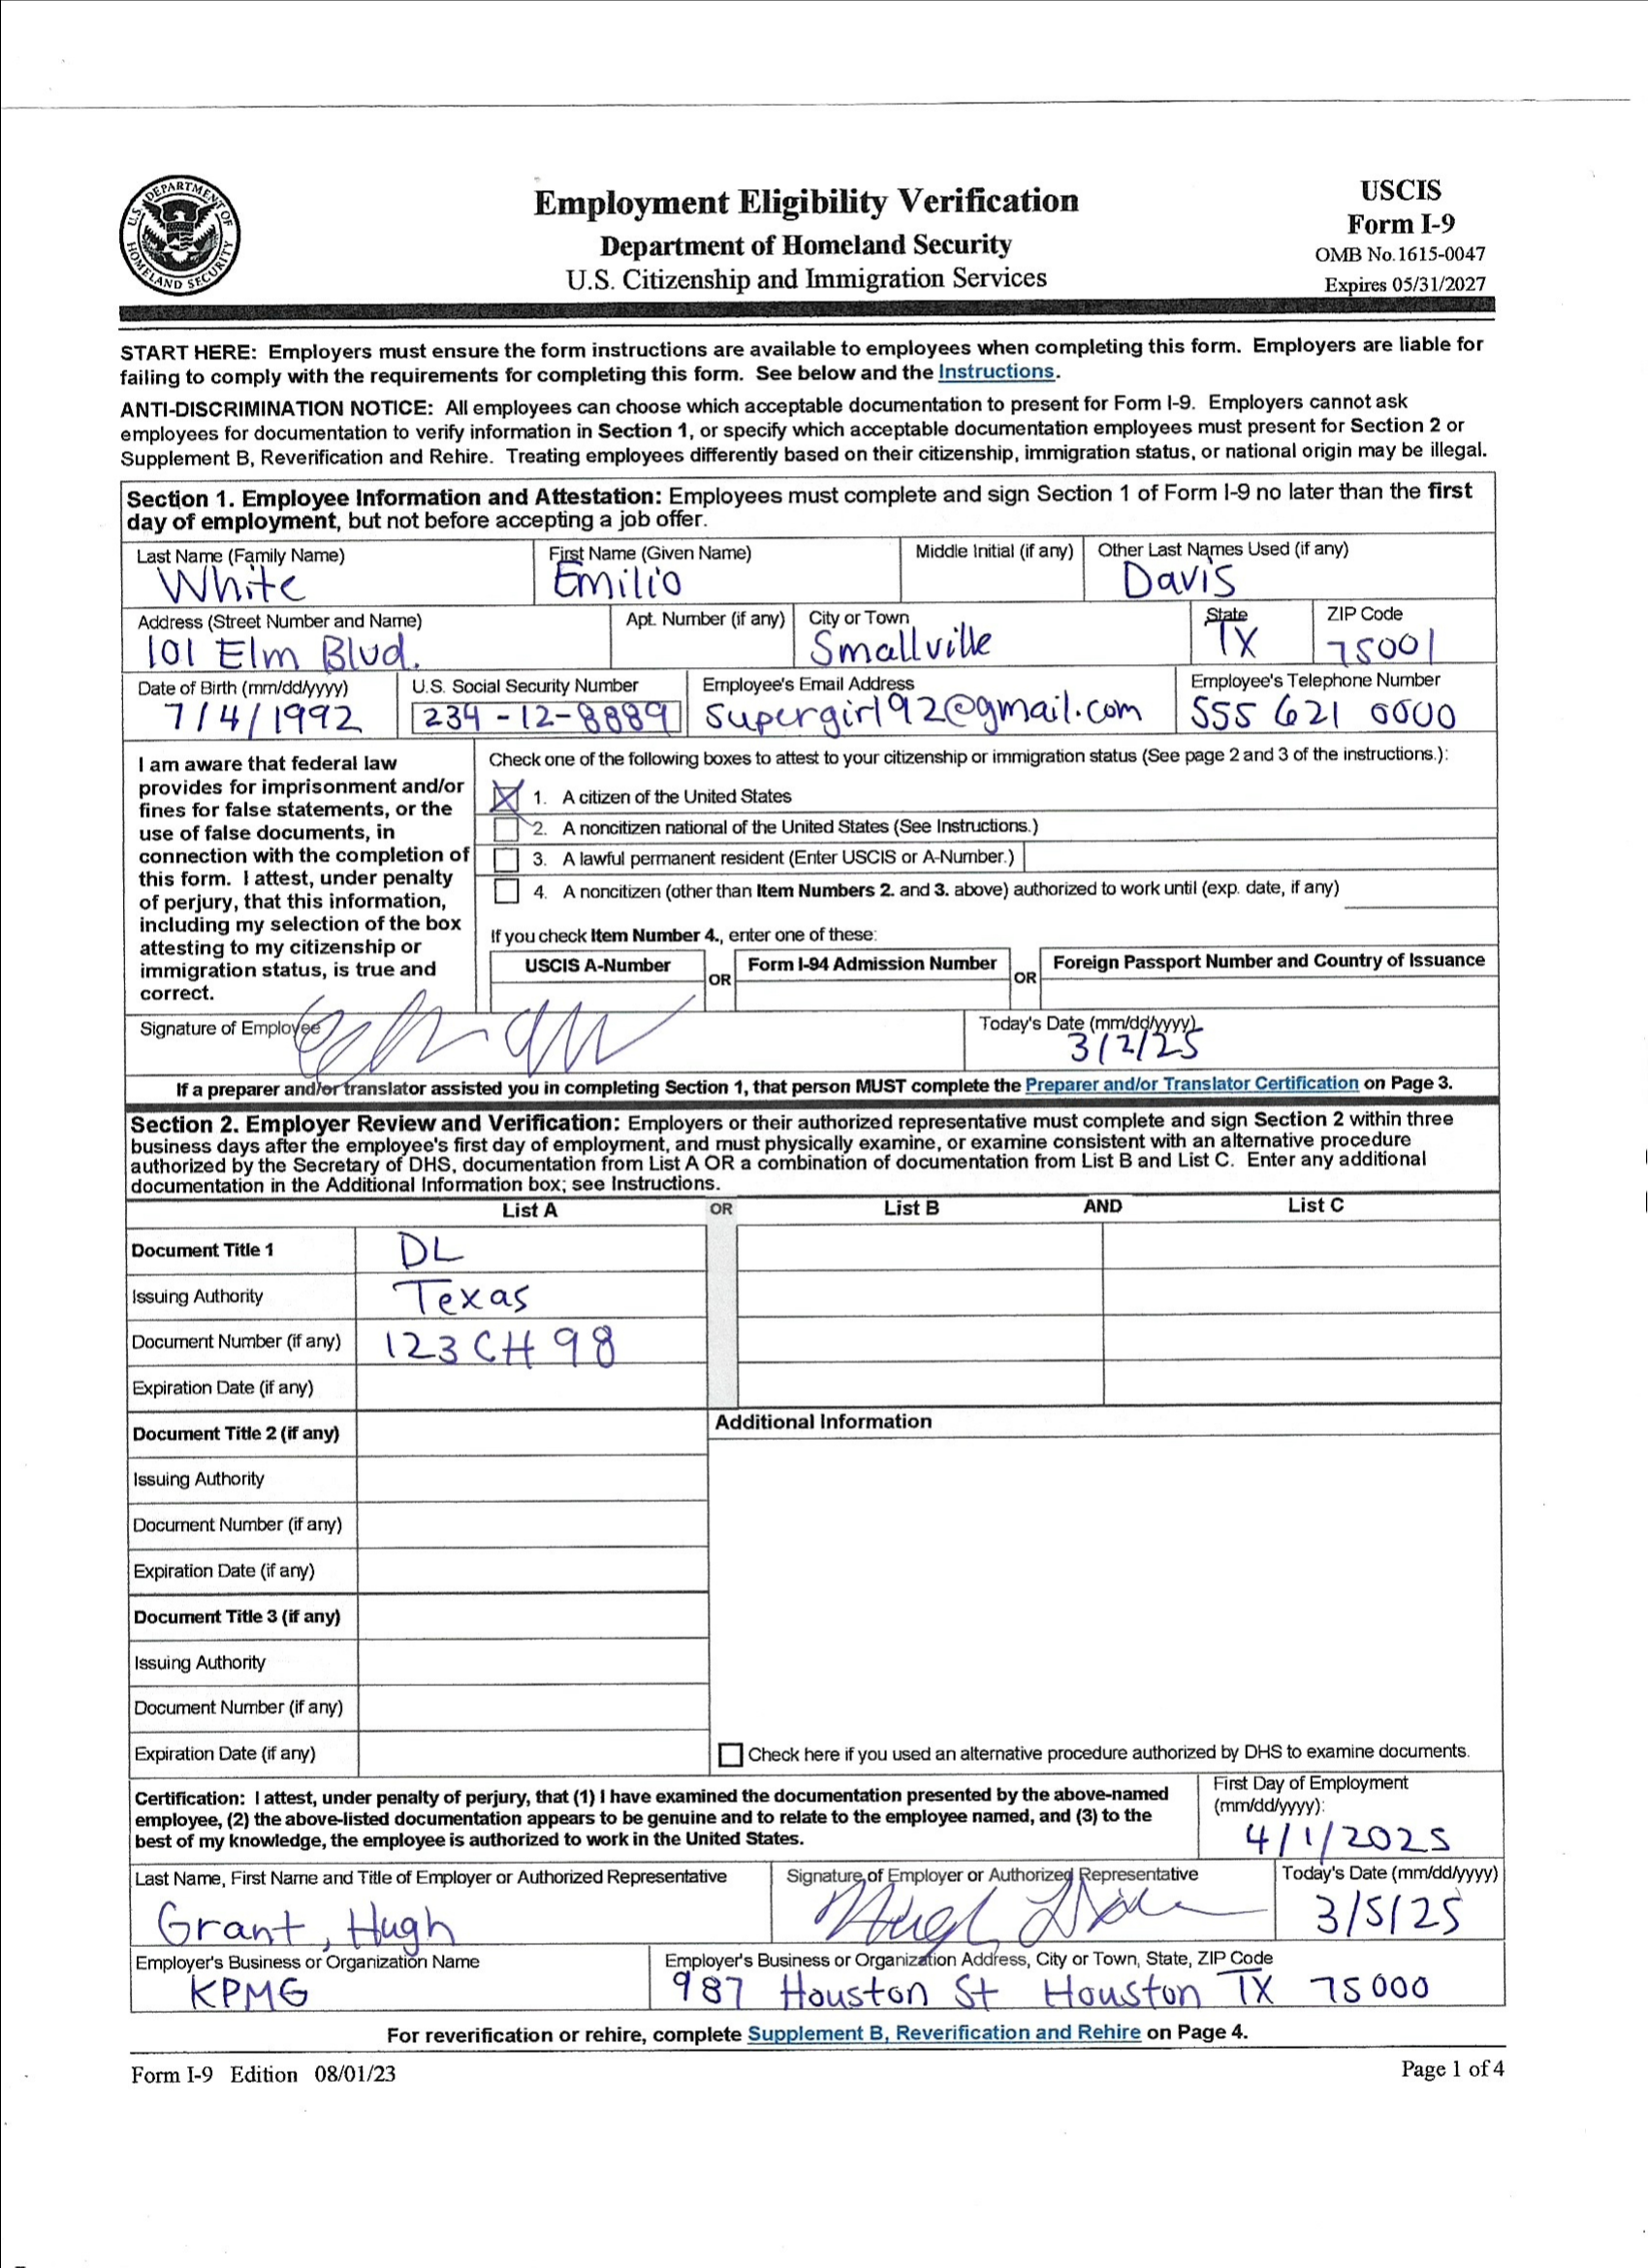 U.S. DEPARTMENT OF HOMELAND SECURITY
Employment Eligibility Verification
Department of Homeland Security
U.S. Citizenship and Immigration Services
USCIS
Form I-9
OMB No.1615-0047
Expires 05/31/2027
START HERE: Employers must ensure the form instructions are available to employees when completing this form. Employers are liable for
failing to comply with the requirements for completing this form. See below and the Instructions.
ANTI-DISCRIMINATION NOTICE: All employees can choose which acceptable documentation to present for Form I-9. Employers cannot ask
employees for documentation to verify information in Section 1, or specify which acceptable documentation employees must present for Section 2 or
Supplement B, Reverification and Rehire. Treating employees differently based on their citizenship, immigration status, or national origin may be illegal.
Section 1. Employee Information and Attestation: Employees must complete and sign Section 1 of Form I-9 no later than the first
day of employment, but not before accepting a job offer.
Last Name (Family Name) First Name (Given Name) Middle Initial (if any) Other Last Names Used (if any)
White Emilio Davis
Address (Street Number and Name) Apt. Number (if any) City or Town State ZIP Code
101 Elm Blvd. Smallville TX 75001
Date of Birth (mm/dd/yyyy) U.S. Social Security Number Employee's Email Address Employee's Telephone Number
7/4/1992 234-12-8889 supergirl92@gmail.com 555 621 0000
I am aware that federal law
provides for imprisonment and/or
fines for false statements, or the
use of false documents, in
connection with the completion of
this form. I attest, under penalty
of perjury, that this information,
including my selection of the box
attesting to my citizenship or
immigration status, is true and
correct.
Check one of the following boxes to attest to your citizenship or immigration status (See page 2 and 3 of the instructions.):
1. A citizen of the United States
2. A noncitizen national of the United States (See Instructions.)
3. A lawful permanent resident (Enter USCIS or A-Number.)
4. A noncitizen (other than Item Numbers 2. and 3. above) authorized to work until (exp. date, if any)
If you check Item Number 4., enter one of these:
USCIS A-Number OR Form I-94 Admission Number OR Foreign Passport Number and Country of Issuance
Signature of Employee Today's Date (mm/dd/yyyy)
3/2/25
If a preparer and/or translator assisted you in completing Section 1, that person MUST complete the Preparer and/or Translator Certification on Page 3.
Section 2. Employer Review and Verification: Employers or their authorized representative must complete and sign Section 2 within three
business days after the employee's first day of employment, and must physically examine, or examine consistent with an alternative procedure
authorized by the Secretary of DHS, documentation from List A OR a combination of documentation from List B and List C. Enter any additional
documentation in the Additional Information box; see Instructions.
List A OR List B AND List C
Document Title 1 DL
Issuing Authority Texas
Document Number (if any) 123CH98
Expiration Date (if any)
Document Title 2 (if any)
Additional Information
Issuing Authority
Document Number (if any)
Expiration Date (if any)
Document Title 3 (if any)
Issuing Authority
Document Number (if any)
Expiration Date (if any)
Check here if you used an alternative procedure authorized by DHS to examine documents.
Certification: I attest, under penalty of perjury, that (1) I have examined the documentation presented by the above-named
employee, (2) the above-listed documentation appears to be genuine and to relate to the employee named, and (3) to the
best of my knowledge, the employee is authorized to work in the United States.
First Day of Employment
(mm/dd/yyyy):
4/1/2025
Last Name, First Name and Title of Employer or Authorized Representative Signature of Employer or Authorized Representative Today's Date (mm/dd/yyyy)
Grant, Hugh 3/5/25
Employer's Business or Organization Name Employer's Business or Organization Address, City or Town, State, ZIP Code
KPMG 987 Houston St Houston TX 75000
For reverification or rehire, complete Supplement B, Reverification and Rehire on Page 4.
Form I-9 Edition 08/01/23 Page 1 of 4